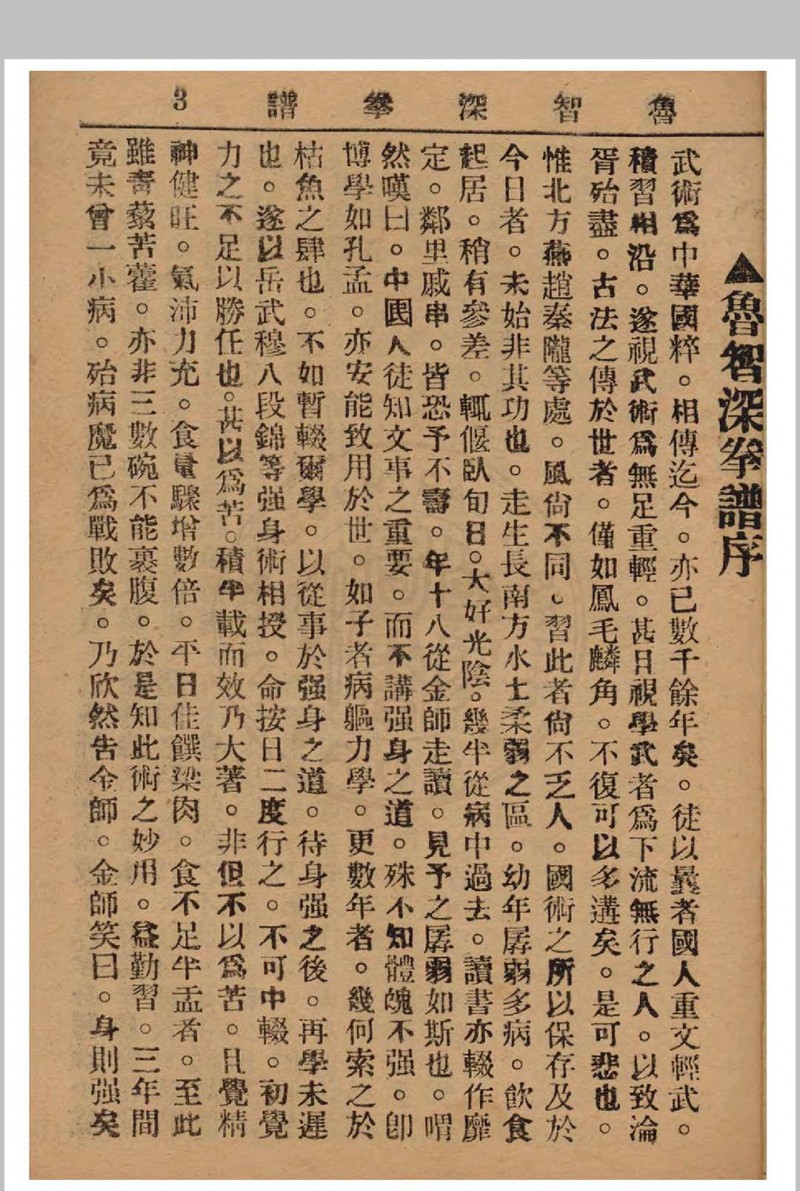 魯智深拳譜 3
▲魯智深拳譜序
武術爲中華國粹。相傳迄今。亦已數千餘年矣。徒以曩者國人重文輕武。
積習相沿。遂視武術爲無足重輕。甚日視學武者爲下流無行之人。以致淪
胥殆盡。古法之傳於世者。僅如鳳毛麟角。不復可以多遘矣。是可悲也。
惟北方燕趙秦隴等處。風尙不同。習此者尙不乏人。國術之所以保存及於
今日者。未始非其功也。走生長南方水土柔弱之區。幼年孱弱多病。飮食
起居。稍有參差。輒偃臥旬日。大好光陰。幾半從病中過去。讀書亦輟作靡
定。鄰里戚串。皆恐予不壽。年十八從金師走讀。見予之孱弱如斯也。喟
然嘆曰。中國人徒知文事之重要。而不講强身之道。殊不知體魄不强。卽
博學如孔孟。亦安能致用於世。如子者病軀力學。更數年者。幾何索之於
枯魚之肆也。不如暫輟爾學。以從事於强身之道。待身强之後。再學未遲
也。遂以岳武穆八段錦等强身術相授。命按日二度行之。不可中輟。初覺
力之不足以勝任也。甚以爲苦。積半載而效乃大著。非但不以爲苦。且覺精
神健旺。氣沛力充。食量驟增數倍。平日佳饌粱肉。食不足半盂者。至此
雖靑蔬苦藿。亦非三數碗不能裹腹。於是知此術之妙用。益勤習。三年間
竟未曾一小病。殆病魔已爲戰敗矣。乃欣然告金師。金師笑曰。身則强矣